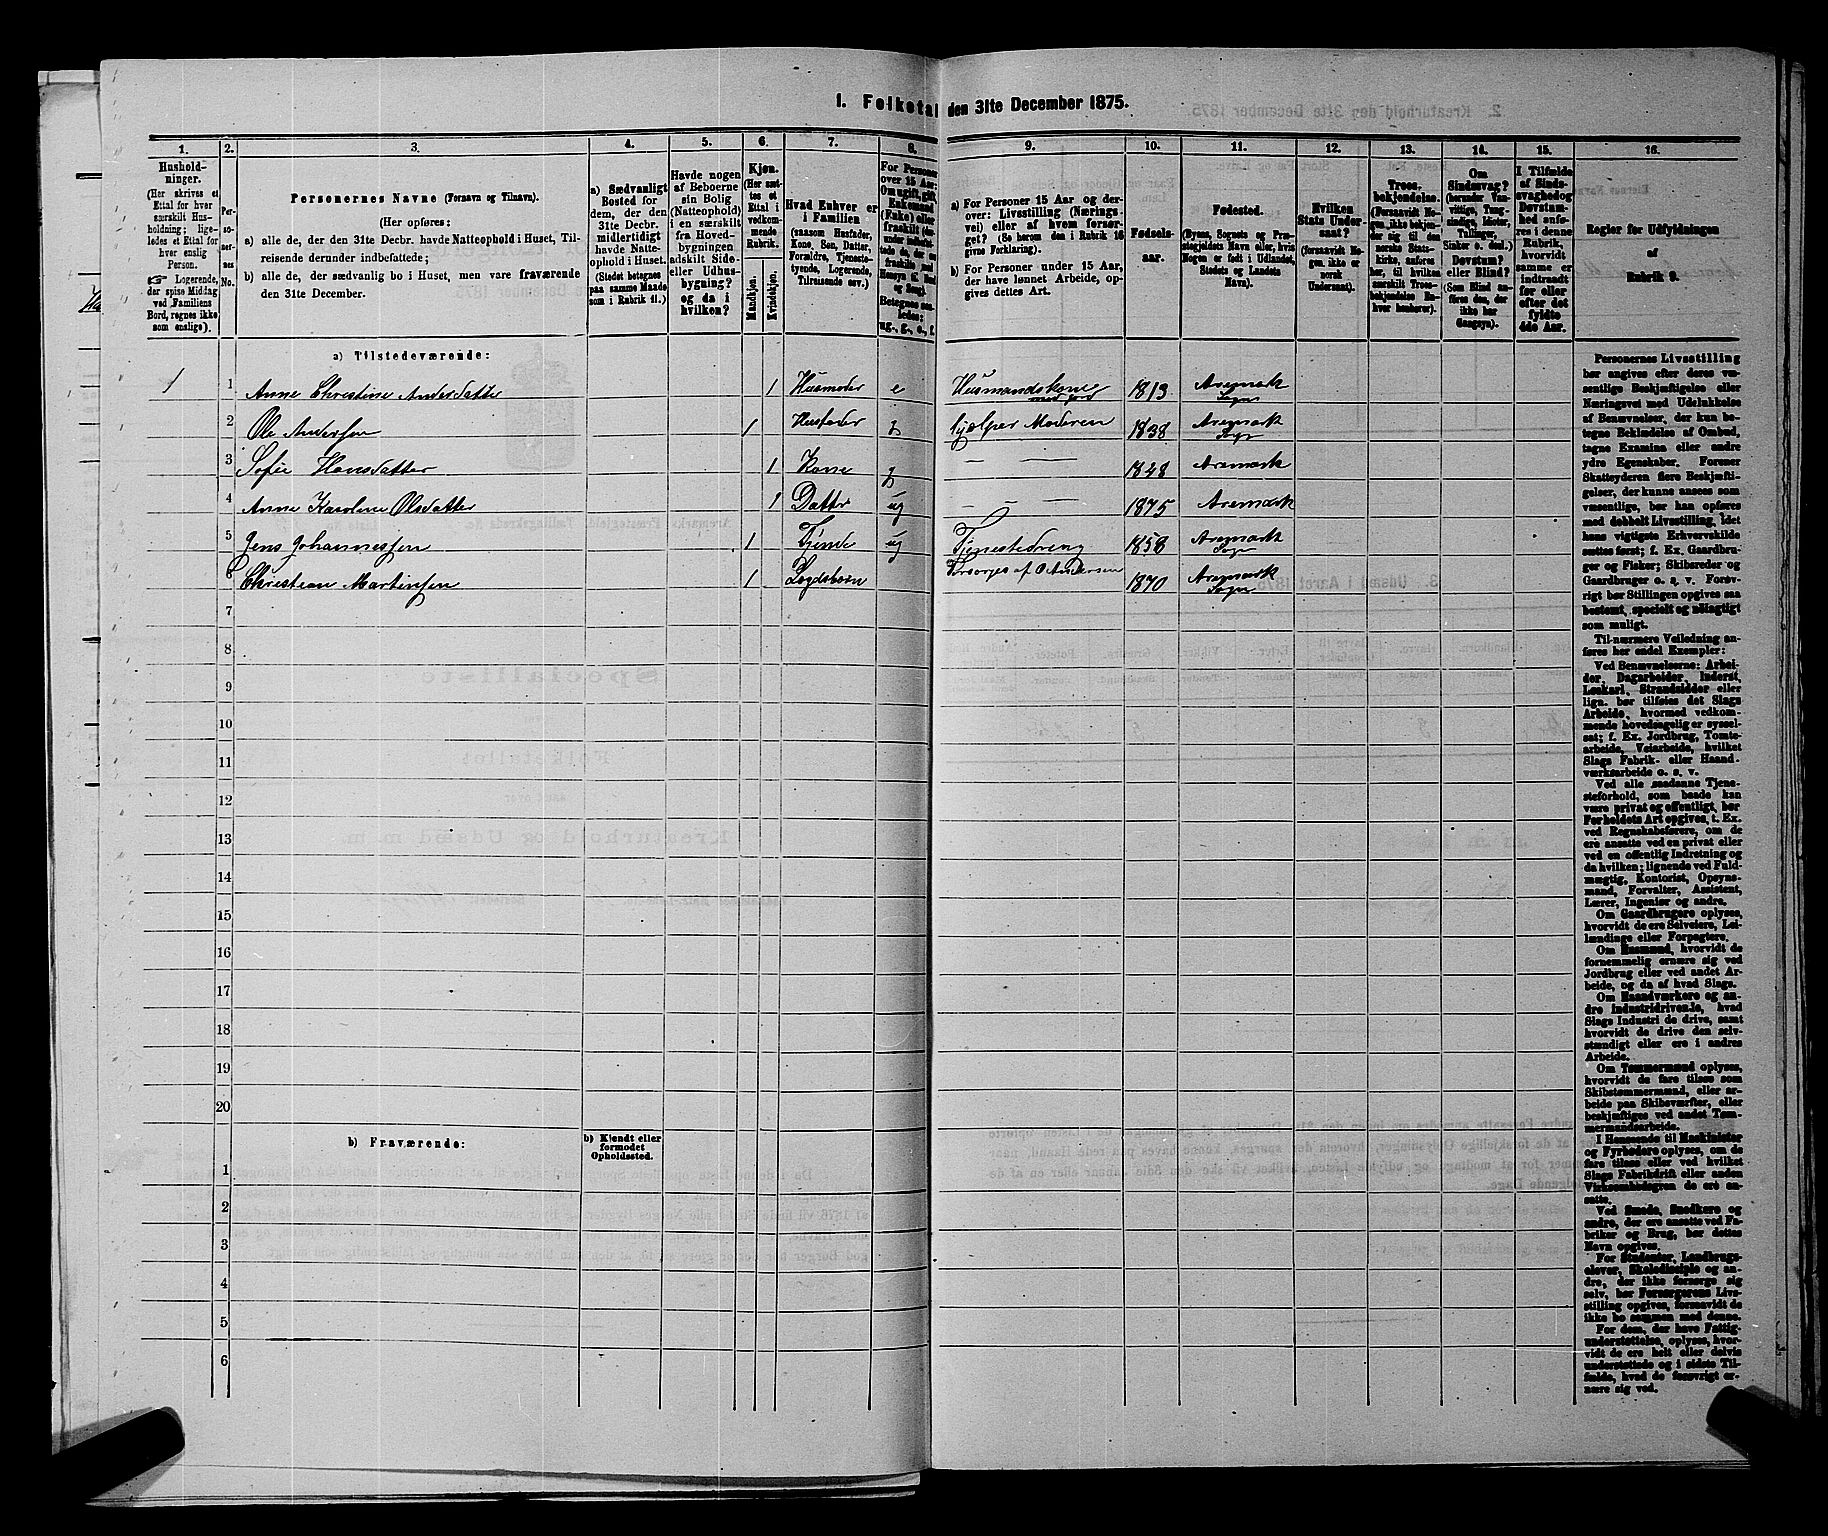 1. Folketal den 31te December 1875.
1. 2. 3. 4. 5. 6. 7. 8. 9. 10. 11. 12. 13. 14. 15. 16.
Hushold-
ninger.
(Her skrives et
Ettal for hver
særskilt Hus-
holdning; lige-
ledes et Ettal for
hver enslig
Person.
☞ Logerende,
der spise Middag
ved Familiens
Bord, regnes ikke
som enslige).
Per-
so-
ner-
nes
No.
Personernes Navne (Fornavn og Tilnavn).
(Her opføres:
a) alle de, der den 31te Decbr. havde Natteophold i Huset, Til-
reisende derunder indbefattede;
b) alle de, der sædvanlig bo i Huset, men vare fraværende
den 31te December.
a) Sædvanligt
Bosted for
dem, der den
31te Decbr.
midlertidigt
havde Natte-
ophold i Huset.
(Stedet betegnes
paa samme Maade
som i Rubrik 11.)
Havde nogen
af Beboerne
sin Bolig
(Natteophold)
i en særskilt
fra Hoved-
bygningen
adskilt Side-
eller Udhus-
bygning?
og da i
hvilken?
Kjøn.
(Her sæt-
tes et
Ettal i
vedkom-
mende
Rubrik.
Mandkjøn.
Kvindekjøn.
Hvad Enhver er
i Familien
(saasom Husfader,
Kone, Søn, Datter,
Forældre, Tjeneste-
tyende, Logerende,
Tilreisende osv.)
For Personer
over 15 Aar:
Om ugift, gift,
Enkemand
(Enke) eller
fraskilt
Betegnes saa-
ledes:
ug., g., e., f.
a) For Personer 15 Aar og der-
over: Livsstilling (Nærings-
vei) eller af hvem forsør-
get? (Se herom den i Rubrik 16
givne Forklaring).
b) For Personer under 15 Aar,
der have lønnet Arbeide, op-
gives dettes Art.
Fødsels-
aar.
Fødested.
(Byens, Sognets og Præ-
stegjeldets Navn eller, hvis
Nogen er født i Udlandet,
Stedets og Landets
Navn).
Hvilken
Stats Under-
saat?
(forsaavidt No-
gen ikke er
norsk
Undersaat).
Troes-
bekjendelse.
(Forsaavidt No-
gen ikke bekjen-
der sig til den
norske Stats-
kirke, anføres
her, til hvilken
særskilt Troes-
bekjendelse En-
hver henhører).
Om
Sindssvag?
(herunder Van-
vittige, Tung-
sindige, Idioter,
Tullinger,
Sinker o. desl.)
Døvstum?
eller Blind?
(Som Blind an-
føres den, der
ikke har
Gangsyn).
I Tilfælde
af Sinds-
svaghed og
Døvstum-
hed anfø-
res i denne
Rubrik,
hvorvidt
samme er
indtraadt
før eller
efter det
fyldte
4de Aar.
Regler for Udfyldningen
af
Rubrik 9.
a) Tilstedeværende:
1 1 Anne Christine Andersdatter 1 Husmoder e Husmandskone med jord 1813 Aremark Sogn
2 Ole Andersen 1 Husfader g hjælper Moderen 1838 Aremark Sogn
3 Sofie Hansdatter 1 Kone g — — 1848 Aremark
4 Anne Karoline Olsdatter 1 Datter ug — — 1875 Aremark
5 Jens Johannessen 1 Tjende ug Tjenestedreng 1858 Aremark Sogn
6 Christian Martinsen 1 Logdsbørn Forsørges af O Andersen 1870 Aremark Sogn
7
8
9
10
11
12
13
14
15
16
17
18
19
20
b) Fraværende:
b) Kjendt eller
formodet
Opholdssted.
1
2
3
4
5
6
Personernes Livsstilling
bør angives efter deres væ-
sentlige Beskjæftigelse eller
Næringsvei med Udelukkelse
af Benævnelser, der kun be-
tegne Beklædelse af Ombud,
tagne Examina eller andre
ydre Egenskaber. Forener
Skatteyderen flere Beskjæfti-
gelser, der kunne ansees som
væsentlige, bør han opføres
med dobbelt Livsstilling, idet
hans vigtigste Erhvervskilde
sættes først; f. Ex. Gaardbru-
ger og Fisker; Skibsreder og
Gaardbruger o. s. v. Forøv-
rigt bør Stillingen opgives saa
bestemt, specielt og nøiagtigt
som muligt.
Til nærmere Veiledning an-
føres her endel Exempler:
Ved Benævnelserne: Arbei-
der, Dagarbeider, Inderst,
Løskarl, Strandsidder eller
lign. bør tilføies det Slags
Arbeide, hvormed vedkom-
mende hovedsagelig er syssel-
sat; f. Ex. Jordbrug, Tomte-
arbeide, Veiarbeide, hvilket
Slags Fabrik- eller Haand-
værksarbeide o. s. v.
Ved alle saadanne Tjene-
steforhold, som baade kan
være privat og offentligt, bør
Forholdets Art opgives, t. Ex.
ved Regnskabsførere, om de
ere ansatte ved en privat eller
ved en offentlig Indretning og
da hvilken; lignende ved Fuld-
mægtig, Kontorist, Opsyns-
mand, Forvalter, Assistent,
Lærer, Ingeniør og andre.
Om Gaardbrugere oplyses,
hvorvidt de ere Selveiere, Lei-
lændinge eller Forpagtere.
Om Husmænd, hvorvidt de
fornemmelig ernære sig ved
Jordbrug eller ved andet Ar-
beide, og da af hvad Slags.
Om Haandværkere og an-
dre Industridrivende, hvad
Slags Industri de drive, samt
hvorvidt de drive den selv-
stændigt eller ere i andres
Arbeide.
Om Tømmermænd oplyses,
hvorvidt de fare tilsøs som
Skibstømmermænd, eller ar-
beide paa Skibsværfter, eller
beskjæftiges ved andet Tøm-
mermandsarbeide.
I Henseende til Maskinister
og Fyrbødere oplyses, om de
fare tilsøs eller ved hvilket
Slags Fabrikdrift eller anden
Virksomhedsgren de ere an-
satte.
Ved Smede, Snedkere og
andre, der ere ansatte ved Fa-
briker og Brug, bør dettes
Navn opgives.
For Studenter, Landbrugs-
elever, Skoledisciple og an-
dre, der ikke forsørge sig
selv, bør Forsørgerens Livs-
stilling opgives, forsaavidt de
ikke bo sammen med denne.
For dem, der have Fattig-
understøttelse, oplyses, hvor-
vidt de ere helt eller delvis
understøttede og i sidste Til-
fælde, hvad de forøvrigt er-
nære sig ved.